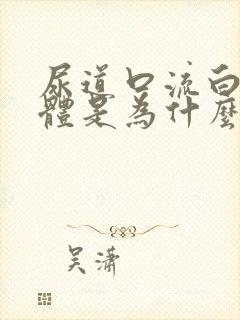 尿道口流白
體是為什麼
吴潇